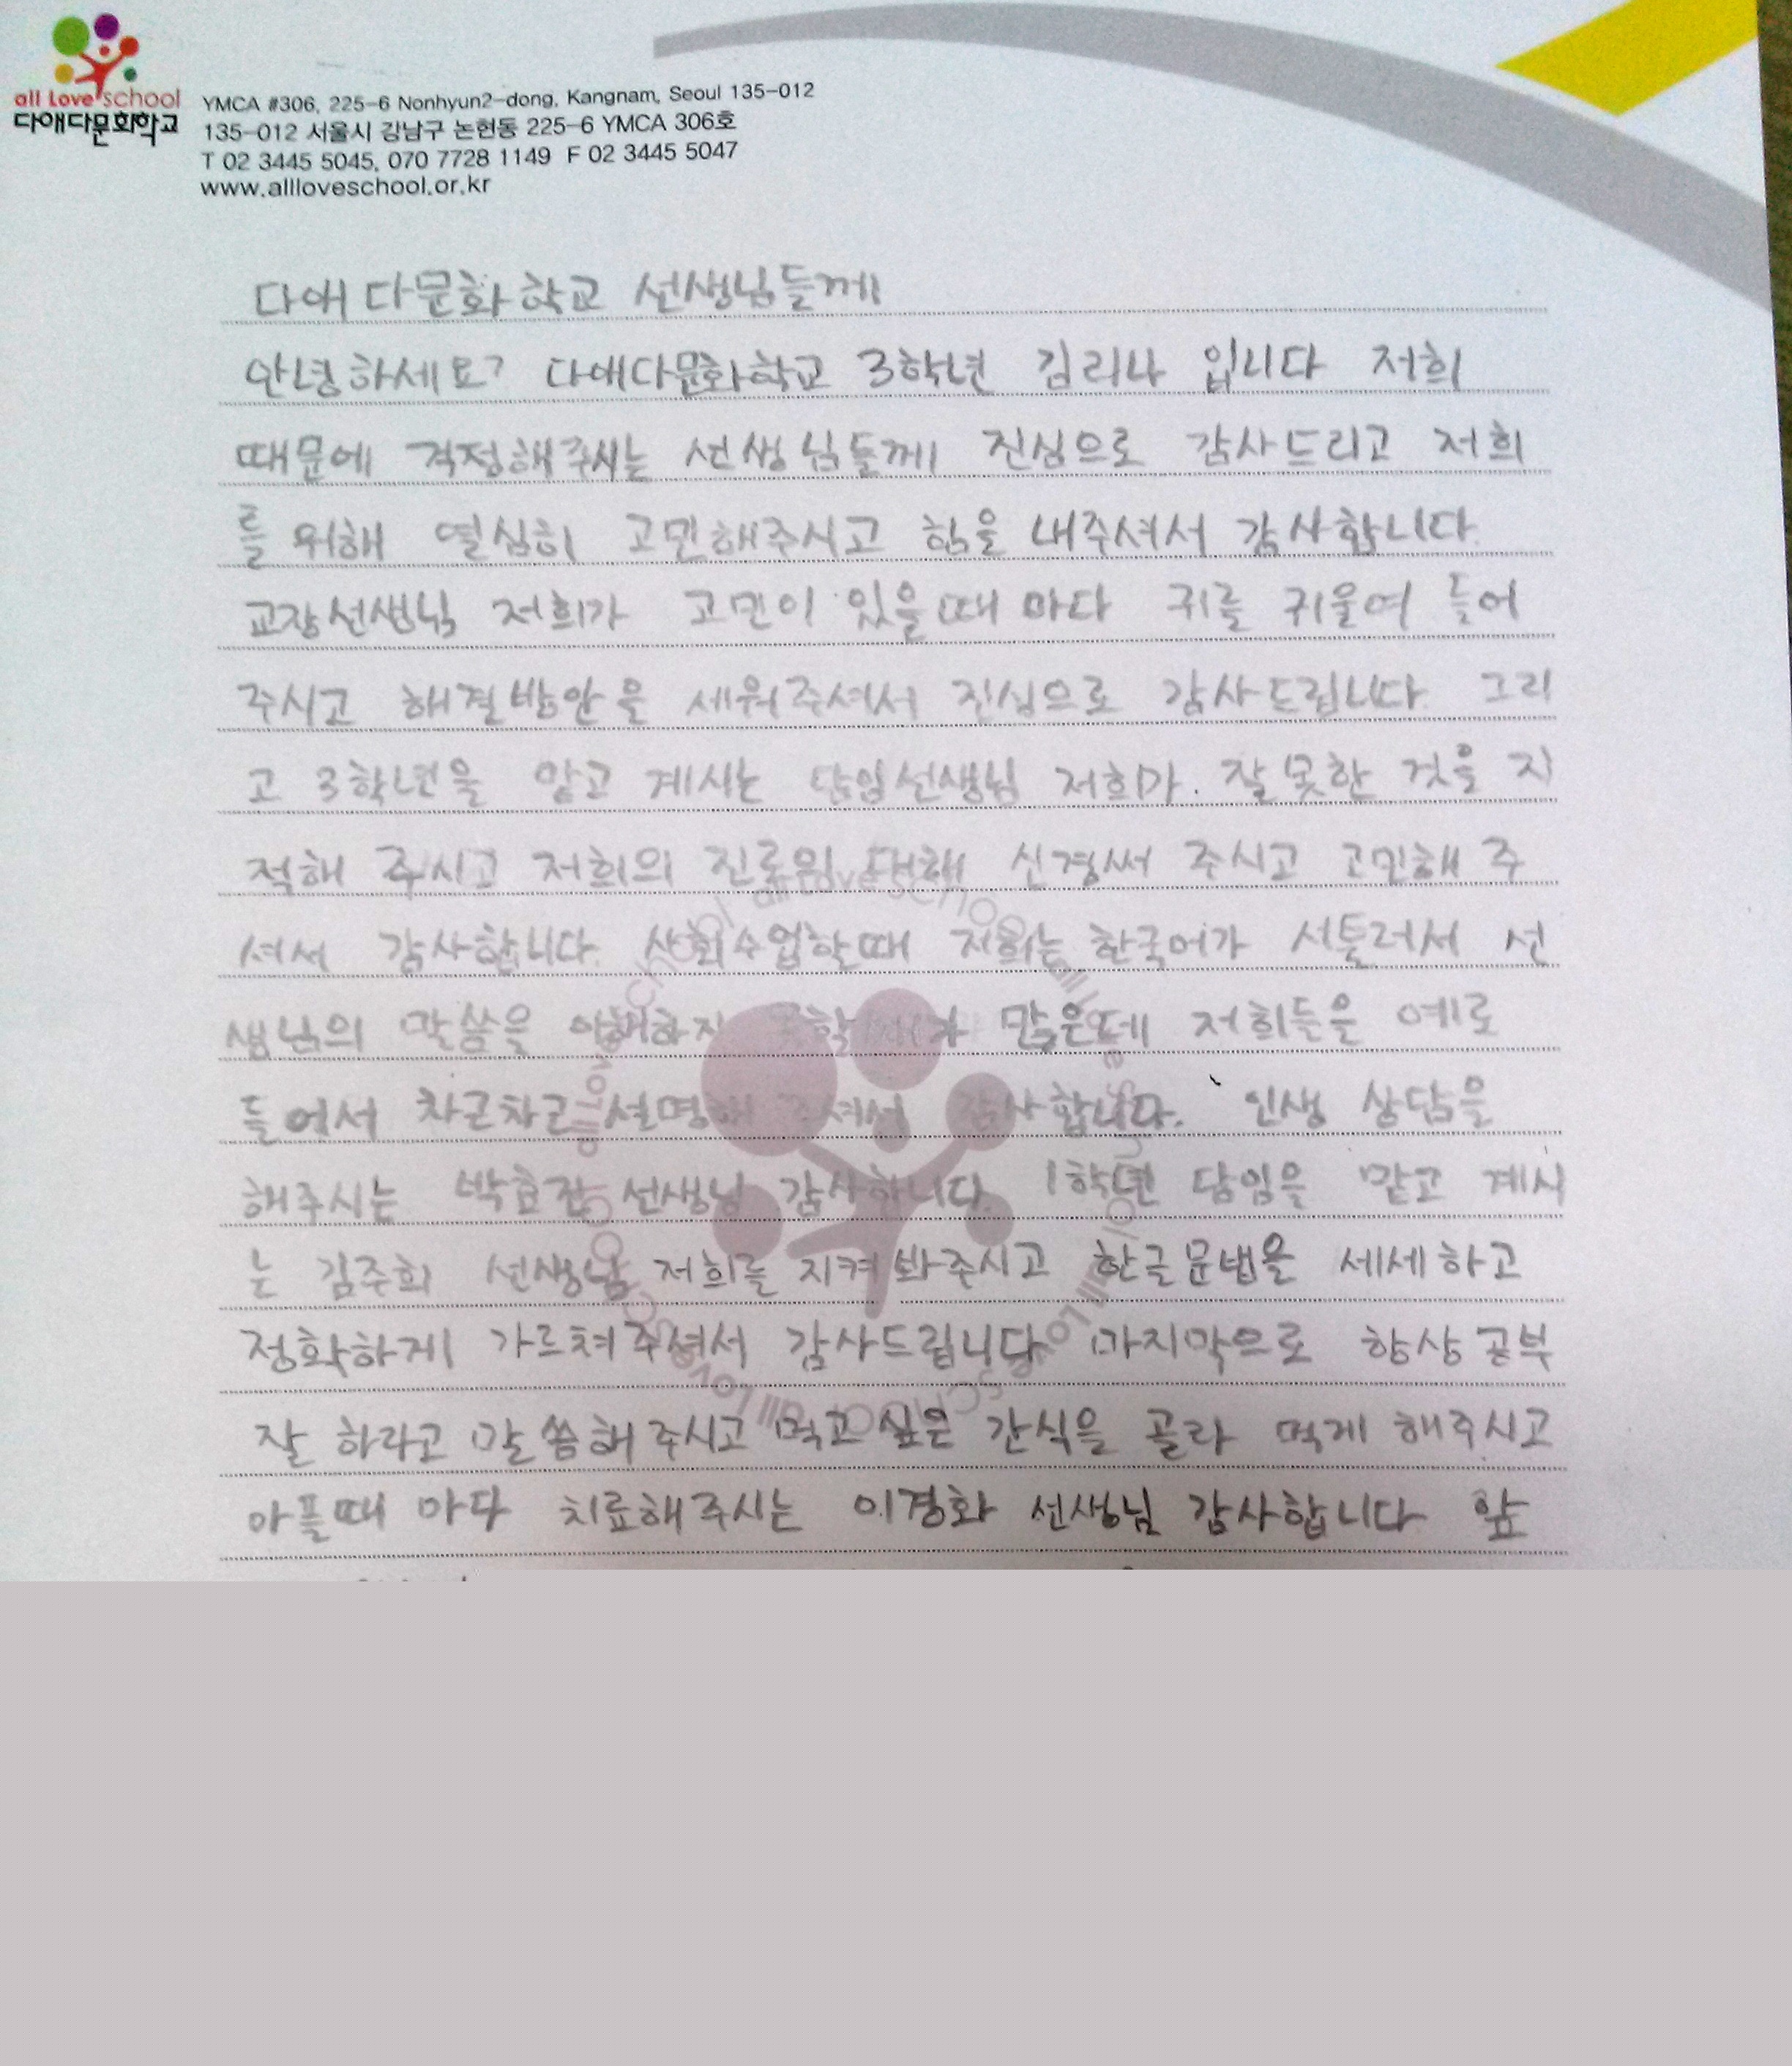 all Love school
다애다문화학교
YMCA #306, 225-6 Nonhyun2-dong, Kangnam, Seoul 135-012
135-012 서울시 강남구 논현동 225-6 YMCA 306호
T 02 3445 5045, 070 7728 1149 F 02 3445 5047
www.allloveschool.or.kr
다애다문화학교 선생님들께
안녕하세요? 다애다문화학교 3학년 김리나 입니다 저희
때문에 걱정해주시는 선생님들께 진심으로 감사드리고 저희
를 위해 열심히 고민해주시고 힘을 내주셔서 감사합니다.
교장선생님 저희가 고민이 있을때 마다 귀를 귀울여 들어
주시고 해결방안을 세워주셔서 진심으로 감사드립니다. 그리
고 3학년을 맡고 계시는 담임선생님 저희가 잘못한 것을 지
적해 주시고 저희의 대해 신경써 주시고 고민해 주
셔서 감사합니다. 사회수업할때 저희는 한국어가 서툴러서 선
생님의 말씀을 이해하지 많은데 저희들을 예로
들어서 차근차근 설명해 감사합니다. 인생 상담을
해주시는 박효진 선생님 감사합니다. 1학년 담임을 맡고 계시
는 김주희 선생님 저희를 지켜봐주시고 한글문법을 세세하고
정확하게 가르쳐주셔서 감사드립니다 마지막으로 항상 공부
잘 하라고 말씀해주시고 먹고 싶은 간식을 골라 먹게 해주시고
아플때 마다 치료해주시는 이경화 선생님 감사합니다 앞